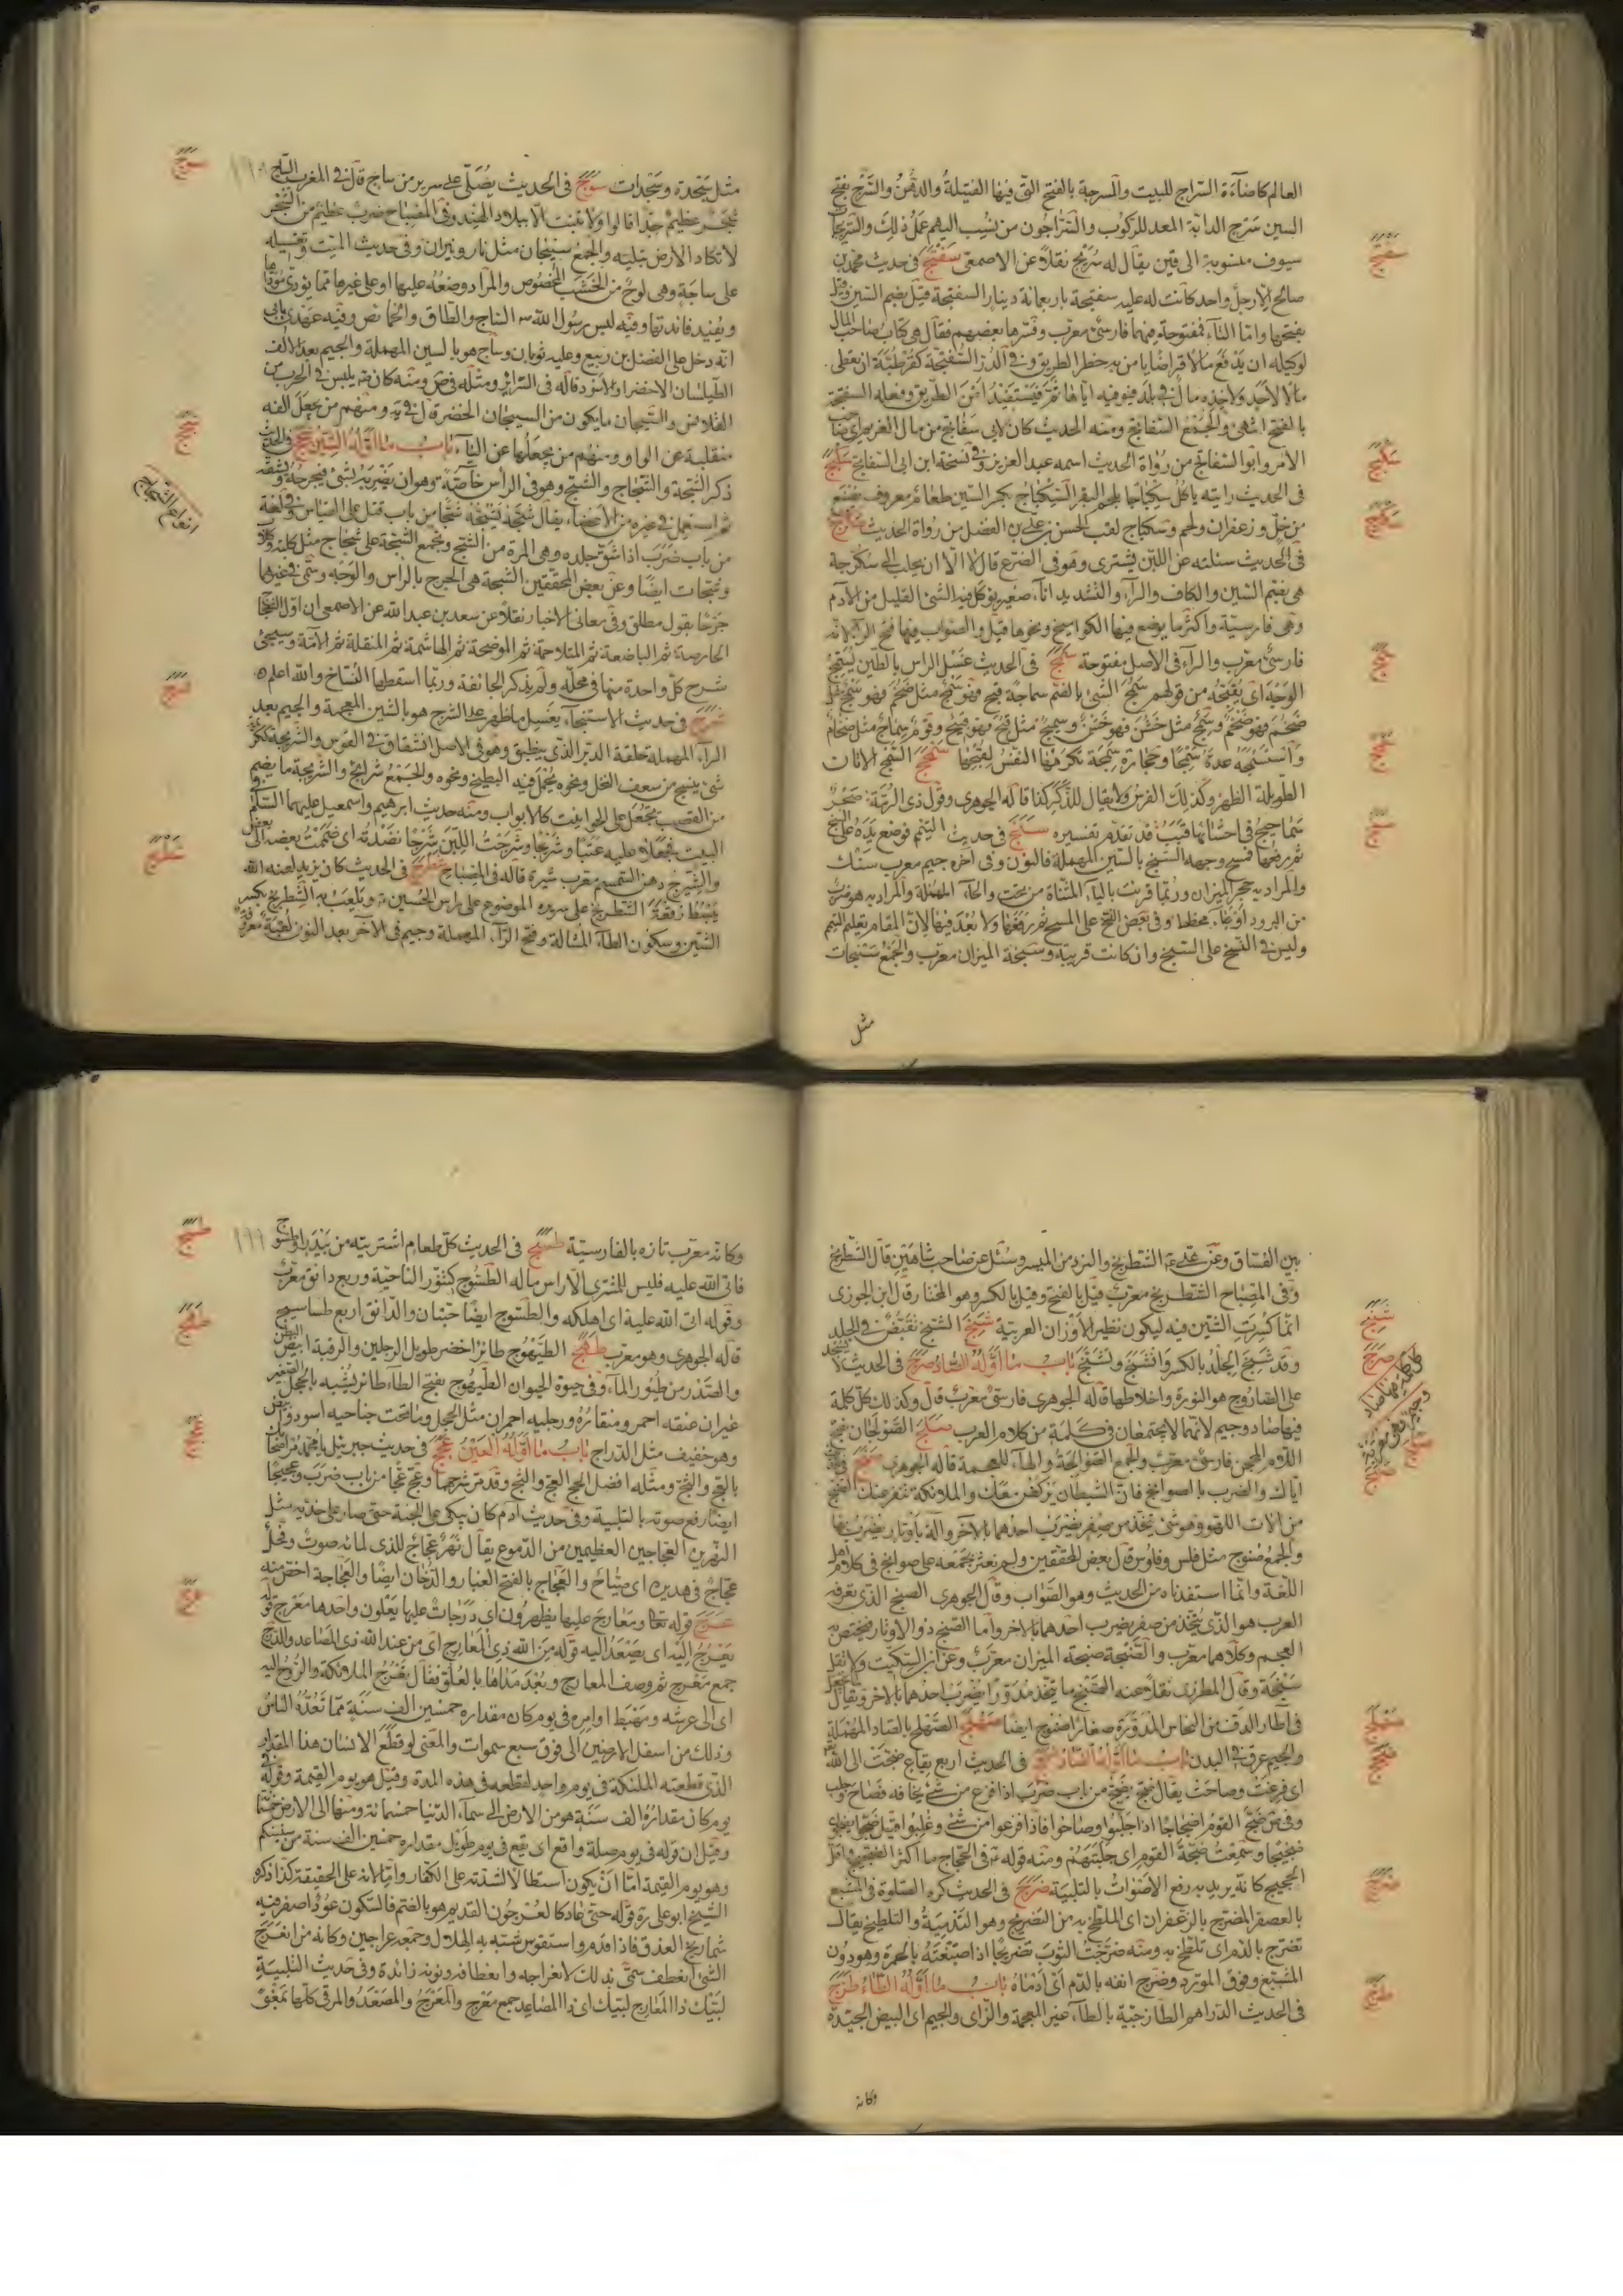 العالم كاضآءة السراج للبيت والمسرجة بالفتح التى فيها الفتيلة والدهن والسرج بفتح
السين سرج الدابة المعد للركوب والسراجون من نسب اليهم عمل ذلك والسريجا
سيوف منسوبة الى قين يقال له سريج نقلا عن الاصمعى سفتج فى حديث محمد بن
صالح الا رجل واحد كانت له عليه سفتجة باربعمائة دينار السفتجة قيل بضم السين وقيل
بفتحها واما التاء فمفتوحة فيهما فارسى معرب وفسرها بعضهم فقال هى كتاب صاحب المال
لوكيله ان يدفع مالا قراضا يامن به خطر الطريق وفى الدر السفتجة كقرطبة ان تعطى
مالا لاحد ولاخذه مال فى بلد فيوفيه اياها ثم فيستفيد امن الطريق وفعله السفتجة
بالفتح انتهى والجمع السفاتج ومنه الحديث كان لابى سفاتج من مال الغريم اى صاحب
الامر وابو السفاتج من رواة الحديث اسمه عبد العزيز وفى نسخة ابن ابى السفاتج سكبج
فى الحديث رايته ياكل سكباجا بلحم البقر السكباج بكسر السين طعام معروف يصنع
من خل وزعفران ولحم وسكباج لقب الحسن بن على بن الفضل من رواة الحديث سكرج
فى الحديث سئلته عن اللبن يشترى وهو فى الضرع قال لا الا ان يحلب لك سكرجة
هى بضم السين والكاف والرآء والتشديد انآء صغير يؤكل فيه الشئ القليل من الادم
وهى فارسية واكثر ما يوضع فيها الكواميخ ونحوها قيل والصواب فيها فتح الرآء لانه
فارسى معرب والرآء فى الاصل مفتوحة سمج فى الحديث غسل الراس بالطين يسمج
الوجه اى يقبحه من قولهم سمج الشئ بالضم سماجة قبح فهو سمج مثل ضخم فهو
ضخم وسمج مثل خشن فهو خشن وسميج مثل قبح فهو قبيح وقوم سماج مثل ضخام
واستسمجه عده سمجا وحجارة سمجة تكرهها النفس لقبحها سمحج السمحج الاتان
الطويلة الظهر وكذلك الفرس ولا يقال للذكر كذا قاله الجوهرى وقول ذى الرمة صخر
سماحيج فى احشائها قبب قد تقدم تفسيره سنج فى حديث التيمم فوضع يده على السنج
ثم رفعها فمسح وجهه السنج بالسين المهملة فالنون وفى آخره جيم معرب سنك
والمراد به حجر الميزان وربما قرئت بالياء المثناة من تحت والحاء المهملة والمراد به ضرب
من البرود او عباءة مخططة وفى بعض النسخ على المسح ثم رفعها ولا بعد فيها لان المقام تعليم التيمم
وليس فى النسخ على السبخ وان كانت قريبة وسنجة الميزان معرب والجمع سنجات
مثل
مثل سجدة وسجدات سوج فى الحديث يصلى على سرير من ساج قال فى المغرب الساج
شجر عظيم جدا قالوا ولا ينبت الا ببلاد الهند وفى المصباح ضرب عظيم من الشجر
لا تكاد الارض تبليه والجمع سيجان مثل نار ونيران وفى حديث الميت وتغسيله
على ساجة وهى لوح من الخشب المخصوص والمراد وضعه عليها او على غيرها مما يؤدى مؤداها
ويفيد فائدتها وفيه لبس رسول الله ص الساج والطاق والخمائص وفيه عن
انه دخل على الفضل بن ربيع وعليه ثوبان وساج هو بالسين المهملة والجيم بعد الالف
الطيلسان الاخضر او الاسود قاله فى السرائر ومثله فى ص ومنه كان ص يلبس فى الحرب من
القلانس والسيجان ما يكون من السيجان الخضر قال فى يه ومنهم من يجعل الفه
منقلبة عن الواو ومنهم من يجعلها عن الياء باب ما اوله الشين شجج فى الحديث
ذكر الشجة والشجاج والشج وهو فى الراس خاصة وهو ان يضربه بشئ فيجرحه ويشقه
ثم استعمل فى غيره من الاعضاء يقال شجه يشجه شجا من باب قتل على القياس وفى لغة
من باب ضرب اذا شق جلده وهى المرة من الشج وتجمع الشجة على شجاج مثل كلبة وكلاب
وشجات ايضا وعن بعض المحققين الشجة هى الجرح بالراس والوجه وتسمى فى غيرهما
جرحا بقول مطلق وفى معانى الاخبار نقلا عن سعد بن عبد الله عن الاصمعى ان اول الشجاج
الحارصة ثم الباضعة ثم المتلاحمة ثم الموضحة ثم الهاشمة ثم المنقلة ثم الآمة وسيجئ
شرح كل واحدة منها فى محله ولم يذكر الجائفة وربما اسقطها النساخ والله اعلم
شرج فى حديث الاستنجآء يغسل ما ظهر على الشرج هو بالشين المعجمة والجيم بعد
الرآء المهملة حلقة الدبر الذى ينطبق وهو فى الاصل انشقاق فى القوس والشريجة
شئ ينسج من سعف النخل ونحوه يحمل فيه البطيخ ونحوه والجمع شرائج والشريجة ما يضم
من القصب يجعل على الحوانيت كالابواب ومنه حديث ابرهيم واسمعيل عليهما السلم فى
البيت فجعلا عليه عتبا وشريجا وشرجت اللبن شرجا نضدته اى ضممت بعضه الى بعض
والشيرج دهن السمسم معرب شيره قاله فى المصباح شطرج فى الحديث كان يزيد لعنه الله
يبسط رقعة الشطرنج على سريره الموضوع على راس الحسين ع ويلعب به الشطرنج بكسر
الشين وسكون الطآء المثالة وفتح الرآء المهملة وجيم فى الآخر بعد النون لعبة معروفة
بين الفساق وعن على ع الشطرنج والنرد من الميسر وسئل عن صاحب شاهين قال الشطرنج
وفى المصباح الشطرنج معرب قيل بالفتح وقيل بالكسر وهو المختار قال ابن الجوزى
انما كسرت الشين فيه ليكون نظير الاوزان العربية شنج الشنج تقبض فى الجلد
وقد شنج الجلد بالكسر وانشنج وتشنج باب ما اوله الصاد صرج فى الحديث لا تسجد
على الصاروج هو النورة واخلاطها قاله الجوهرى فارسى معرب قال وكذلك كل كلمة
فيها صاد وجيم لانهما لا يجتمعان فى كلمة من كلام العرب صلج الصولجان بفتح
اللام المحجن فارسى معرب والجمع الصوالجة والهآء للعجمة قاله الجوهرى صنج
اياك والضرب بالصوانج فان الشيطان يركض معك والملائكة تنفر عنك الصنج
من آلات اللهو وهو شئ يتخذ من صفر يضرب احدهما بالاخر وآلة باوتار يضرب بها
والجمع صنوج مثل فلس وفلوس قال بعض المحققين ولم نعثر بجمعه على صوانج فى كلام اهل
اللغة وانما استفدناه من الحديث وهو الصواب وقال الجوهرى الصنج الذى تعرفه
العرب هو الذى يتخذ من صفر يضرب احدهما بالآخر واما الصنج ذو الاوتار فيختص به
العجم وكلاهما معرب والصنجة صنجة الميزان معرب وعن ابن السكيت ولا تقل
سنجة وقال المطرزى نقلا عنه الصنج ما يتخذ مدورا يضرب احدهما بالاخر ويقال لما يجعل
فى اطار الدف من النحاس المدورة صغارا صنوج ايضا صهلج الصهلج بالصاد المهملة
والجيم عرق فى البدن باب ما اوله الضاد ضجج فى الحديث اربع بقاع ضجت الى الله
اى فزعت وصاحت يقال ضج يضج من باب ضرب اذا فزع من شئ يخافه فصاح وجلب
وفى ص ضج القوم اضجاجا اذا جلبوا وصاحوا فاذا فزعوا من شئ وغلبوا قيل ضجوا يضجون
ضجيجا وسمعت ضجة القوم اى جلبتهم ومنه قوله ع فى الحجاج ما اكثر الضجيج واقل
الحجيج كانه يريد به رفع الاصوات بالتلبية ضرج فى الحديث كره الصلوة فى المشبع
بالعصفر المضرج بالزعفران اى الملطخ به من التضريج وهو التدمية والتلطيخ يقال
تضرج بالدم اى تلطخ به ومنه ضرجت الثوب تضريجا اذا صبغته بالحمرة وهو دون
المشبع وفوق المورد وضرج انفه بالدم اى ادماه باب ما اوله الطاء طزج
فى الحديث الدراهم الطازجية بالطآء غير المعجمة والزاى والجيم اى البيض الجيدة
وكانه
وكانه معرب تازه بالفارسية طسج فى الحديث كل طعام اشتريته من بيدر او طسوج
فاتى الله عليه فليس للمشترى الا راس ماله الطسوج كتنور الناحية وربع دانق معرب
وقوله اتى الله عليه اى اهلكه والطسوج ايضا حبتان والدانق اربع طساسيج
قاله الجوهرى وهو معرب طهج الطيهوج طائر اخضر طويل الرجلين والرقبة ابيض البطن
والصدر من طيور المآء وفى حيوة الحيوان الطيهوج بفتح الطاء طائر يشبه بالحجل الصغير
غير ان عنقه احمر ومنقاره ورجليه احمران مثل الحجل وما تحت جناحيه اسود وابيض
وهو خفيف مثل الدراج باب ما اوله العين عجج فى حديث جبرئيل يا محمد مر اصحابك
بالعج والثج ومثله افضل الحج العج والثج وقد مر شرحهما وعج عجا من باب ضرب وعجيجا
ايضا رفع صوته بالتلبية وفى حديث ادم كان يبكى على الجنة حتى صار على خديه مثل
النهرين العجاجين العظيمين من الدموع يقال نهر عجاج للذى لمائه صوت وفحل
عجاج فى هديره اى صياح والعجاج بالفتح الغبار والدخان ايضا والعجاجة اخص منه
عرج قوله تعا ومعارج عليها يظهرون اى درجات عليها يعلون واحدها معرج قوله
يعرج اليه اى يصعد اليه قوله من الله ذى المعارج اى من عند الله ذى المصاعد والدرج
جمع معرج ثم وصف المعارج وبعد مداها بالعلو فقال تعرج الملائكة والروح اليه
اى الى عرشه ومهبط اوامره فى يوم كان مقداره خمسين الف سنة مما تعده الناس
وذلك من اسفل الارضين الى فوق سبع سموات والمعنى لو قطع الانسان هذا المقدار
الذى قطعته الملئكة فى يوم واحد لقطعه فى هذه المدة وقيل هو يوم القيمة وقوله فى
يوم كان مقداره الف سنة هو من الارض الى سماء الدنيا خمسمائة ومنها الى الارض خمسمائة
وقيل ان قوله فى يوم صلة واقع اى يقع فى يوم طويل مقداره خمسين الف سنة من سنينكم
وهو يوم القيمة اما ان يكون استطالا لشدته على الكفار واما لانه على الحقيقة كذا ذكره
الشيخ ابو على ره قوله حتى عاد كالعرجون القديم هو بالضم فالسكون عود اصفر فيه
شماريخ العذق فاذا قدم واستقوس شبه به الهلال وجمعه عراجين وكانه من انعرج
الشئ انعطف سمى بذلك لانعراجه وانعطافه ونونه زائدة وفى حديث التلبية
لبيك ذا المعارج لبيك اى ذا المصاعد جمع معرج والمعرج والمصعد والمرقى كلها بمعنى